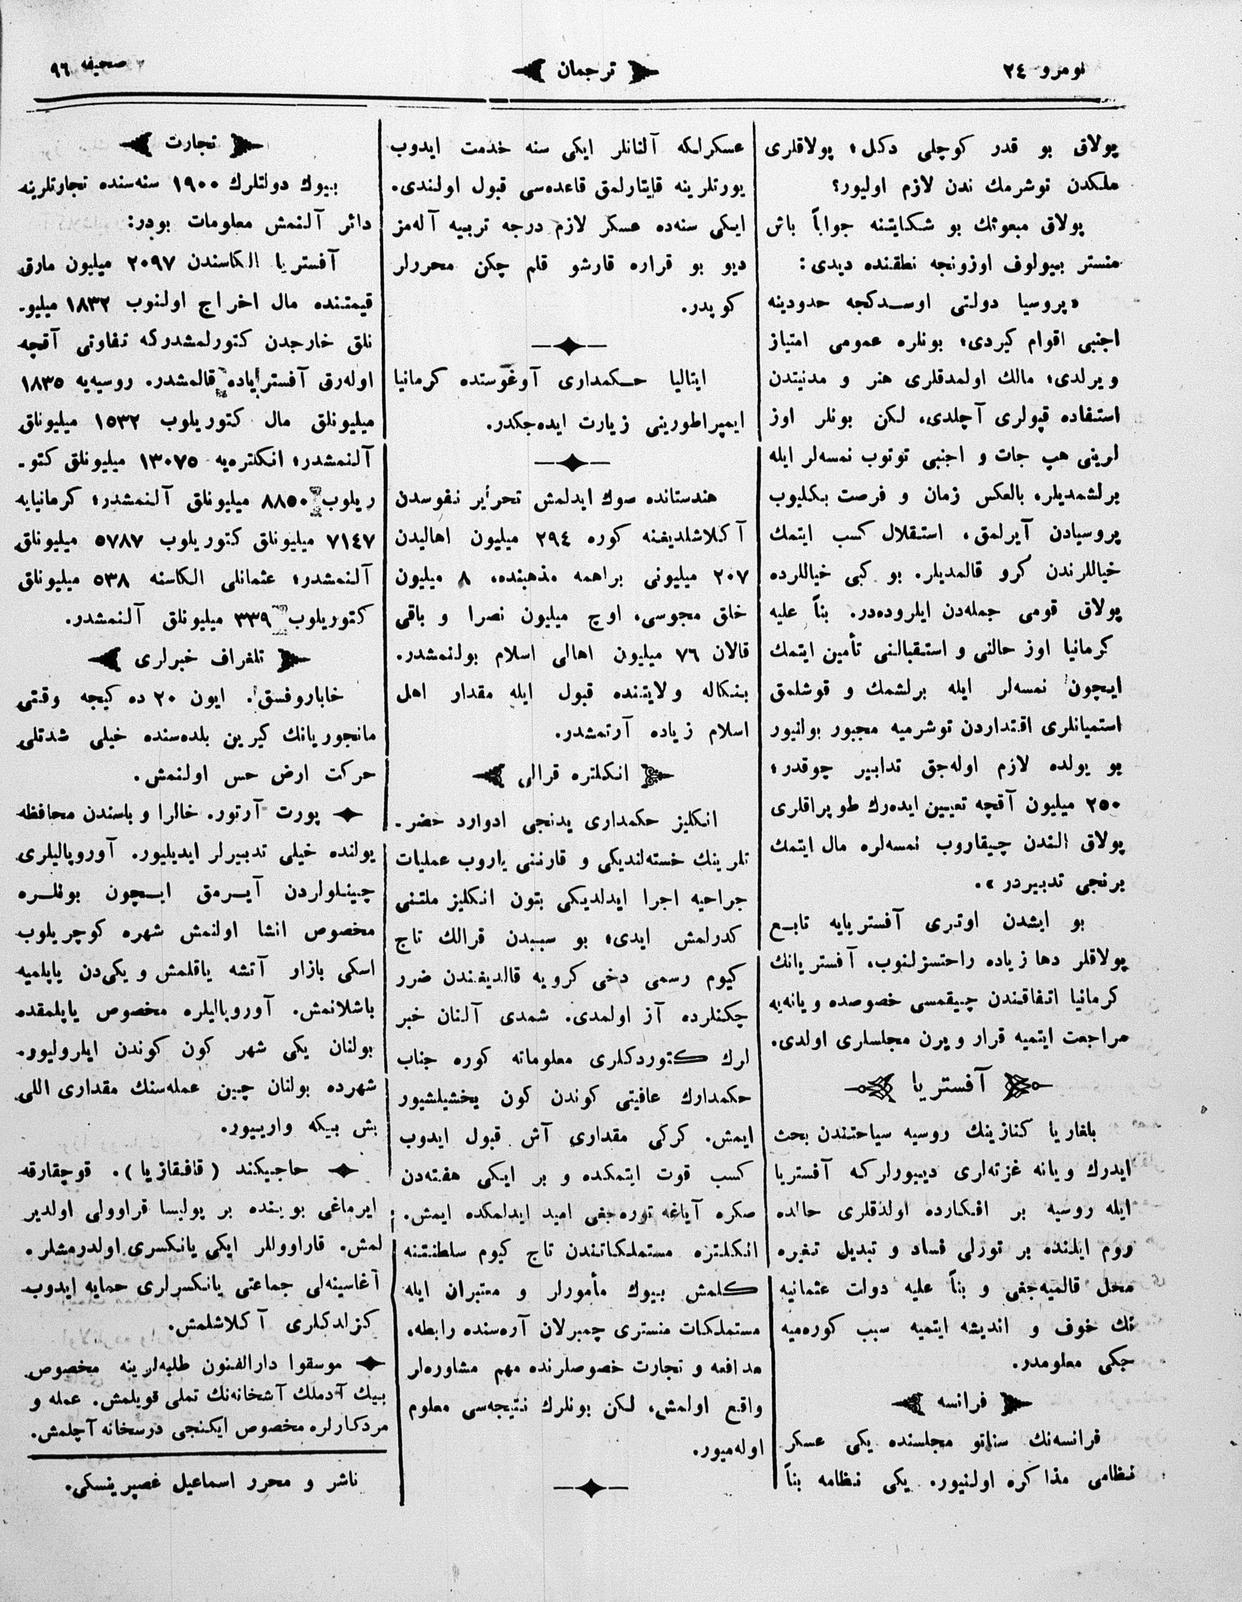 نومرو ٢٤
ترجمان
صحیفه ٩٦
پولاق بو قدر كوچلی دكل؛ پولاقلری
ملكدن توشرمك ندن لازم اولیور؟
پولاق مبعوثك بو شكایتنه جواباً باش
منستر بیولوف اوزونجه نطقنده دیدی:
«پروسیا دولتی اوسدكجه حدودینه
اجنبی اقوام كیردی؛ بونلره عمومی امتیاز
ویرلدی؛ مالك اولمدقلری هنر و مدنیتدن
استفاده قپولری آچلدی، لكن بونلر اوز
لرینی هپ جات و اجنبی توتوب نمسه‌لر ایله
برلشمدیلر، بالعكس زمان و فرصت بكلیوب
پروسیادن آیرلمق، استقلال كسب ایتمك
خیاللرندن كرو قالمدیلر. بو كبی خیاللرده
پولاق قومی جمله‌دن ایلروده‌در. بناً علیه
كرمانیا اوز حالنی و استقبالنی تأمین ایتمك
ایچون نمسه‌لر ایله برلشمك و قوشلمق
استمیانلری اقتداردن توشرمیه مجبور بولنیور
بو یولده لازم اوله‌جق تدابیر چوقدر؛
٢٥٠ میلیون آقچه تعیین ایده‌رك طوپراقلری
پولاق الندن چیقاروب نمسه‌لره مال ایتمك
برنجی تدبیردر».
بو ایشدن اوتری آفستریایه تابع
پولاقلر دها زیاده راحتسزلنوب، آفستریانك
كرمانیا اتفاقندن چیقمسی خصوصده ویانه‌یه
مراجعت ایتمیه قرار ویرن مجلسلری اولدی.
آفستریا
بلغاریا كنازینك روسیه سیاحتندن بحث
ایدرك ویانه غزته‌لری دیبورلركه آفستریا
ایله روسیه بر افكارده اولدقلری حالده
روم ایلنده بر تورلی فساد و تبدیل تغیره
محل قالمیه‌جغی و بناً علیه دولت عثمانیه
نك خوف و اندیشه ایتمیه سبب كوره‌میه
جكی معلومدر.
فرانسه
فرانسه‌نك سناتو مجلسنده یكی عسكر
نظامی مذاكره اولنیور. یكی نظامه بناً
عسكرلكه آلنانلر ایكی سنه خدمت ایدوب
یورتلرینه قایتارلمق قاعده‌سی قبول اولندی.
ایكی سنه‌ده عسكر لازم درجه تربیه آله‌مز
دیو بو قراره قارشو قلم چكن محررلر
كوپدر.
ایتالیا حكمداری آوغوستده كرمانیا
ایمپراطورینی زیارت ایده‌جكدر.
هندستانده صوك ایدلمش تحریر نفوسدن
آكلاشلدیغنه كوره ٢٩٤ میلیون اهالیدن
٢٠٧ میلیونی براهمه مذهبنده، ٨ میلیون
خلق مجوسی، اوچ میلیون نصرا و باقی
قالان ٧٦ میلیون اهالی اسلام بولنمشدر.
بنكاله ولایتنده قبول ایله مقدار اهل
اسلام زیاده آرتمشدر.
انكلتره قرالی
انكلیز حكمداری یدنجی ادوارد خضر-
تلرینك خسته‌لندیكی و قارننی یاروب عملیات
جراحیه اجرا ایدلدیكی بتون انكلیز ملتنی
كدرلمش ایدی؛ بو سببدن قرالك تاج
كیوم رسمی دخی كرویه قالدیغندن ضرر
چكنلرده آز اولمدی. شمدی آلنان خبر
لرك كتوردكلری معلوماته كوره جناب
حكمدارك عافیتی كوندن كون یخشیلشیور
ایمش. كركی مقداری آش قبول ایدوب
كسب قوت ایتمكده و بر ایكی هفته‌دن
صكره آیاغه توره‌جغی امید ایدلمكده ایمش.
انكلتره مستملكاتندن تاج كیوم سلطنتنه
كلمش بیوك مأمورلر و معتبران ایله
مستملكات منستری چمبرلان آره‌سنده رابطه،
مدافعه و تجارت خصوصلرنده مهم مشاوره‌لر
واقع اولمش، لكن بونلرك نتیجه‌سی معلوم
اوله‌میور.
تجارت
بیوك دولتلرك ١٩٠٠ سنه‌سنده تجارتلرینه
دائر آلنمش معلومات بودر:
آفستریا الكاسندن ٢٠٩٧ میلیون مارق
قیمتنده مال اخراج اولنوب ١٨٣٢ میلیو-
نلق خارجدن كتورلمشدركه تفاوتی آقچه
اوله‌رق آفستریاده قالمشدر. روسیه‌یه ١٨٣٥
میلیونلق مال كتوریلوب ١٥٣٢ میلیونلق
آلنمشدر؛ انكلتره‌یه ١٣٠٧٥ میلیونلق كتو-
ریلوب ٨٨٥٠ میلیونلق آلنمشدر؛ كرمانیایه
٧١٤٧ میلیونلق كتوریلوب ٥٧٨٧ میلیونلق
آلنمشدر؛ عثمانلی الكاسنه ٥٣٨ میلیونلق
كتوریلوب ٣٣٩ میلیونلق آلنمشدر.
تلغراف خبرلری
خاباروفسق. ایون ٢٠ ده كیجه وقتی
مانجوریانك كیرین بلده‌سنده خیلی شدتلی
حركت ارض حس اولنمش.
پورت آرتور. خالرا و باسندن محافظه
یولنده خیلی تدبیرلر ایدیلیور. آوروپالیلری
چینلولردن آیرمق ایچون بونلره
مخصوص انشا اولنمش شهره كوچریلوب
اسكی بازار آتشه یاقلمش و یكی‌دن یاپلمیه
باشلانمش. آوروپالیلره مخصوص یاپلمقده
بولنان یكی شهر كون كوندن ایلرولیور.
شهرده بولنان چین عمله‌سنك مقداری اللی
بش بیكه واریبور.
حاجیكند (قافقازیا). قوچقارقه
ایرماغی بوینده بر پولیسا قراوولی اولدیر
لمش. قاراووللر ایكی یانكسری اولدرمشلر.
آغاسینه‌لی جماعتی یانكسرلری حمایه ایدوب
كزلدكلری آكلاشلمش.
موسقوا دارالفنون طلبه‌لرینه مخصوص
بیك آدملك آشخانه‌نك تملی قویلمش. عمله و
مردكارلره مخصوص ایكنجی درسخانه آچلمش.
ناشر و محرر اسماعیل غصپرینسكی.